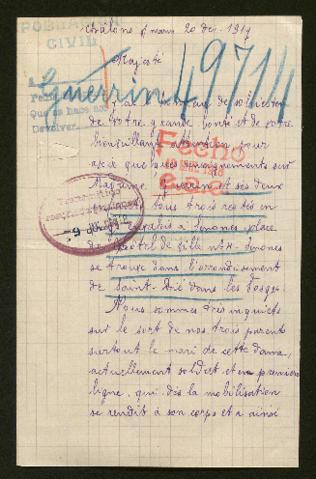 Chalons s/ marne 20 déc. 1917
POBLACIÓN
CIVIL
Majesté
Guerrin 49714
Que se hace
Devolver.
J'ai l'honneur de solliciter
de votre grande bonté et de votre
bienveillante attention pour
avoir quelques renseignements sur
Fecho
Madame Guerrin et ses deux
enfants tous trois restés en
9
pays envahis à Senones place
de l'hôtel de ville n° 4. Senones
se trouve dans l'arrondissement
de Saint-Dié dans les Vosges.
Nous sommes très inquiets
sur le sort de nos trois parents
surtout le mari de cette dame,
actuellement soldat et en première
ligne, qui dès la mobilisation
se rendit à son corps et a ainsi